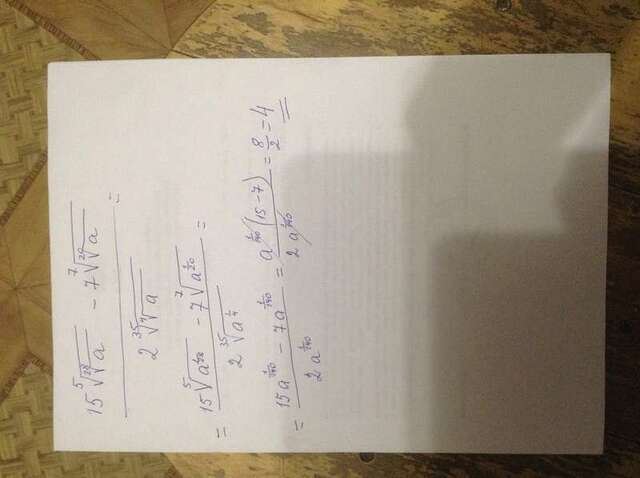 (15 ⁵√(²⁸√a) − 7 ⁷√(²⁰√a)) / (2 ³⁵√(⁴√a)) =
= (15 ⁵√(a^(1/28)) − 7 ⁷√(a^(1/20))) / (2 ³⁵√(a^(1/4))) =
= (15a^(1/140) − 7a^(1/140)) / (2a^(1/140)) = (a^(1/140)(15−7)) / (2a^(1/140)) = 8/2 = 4